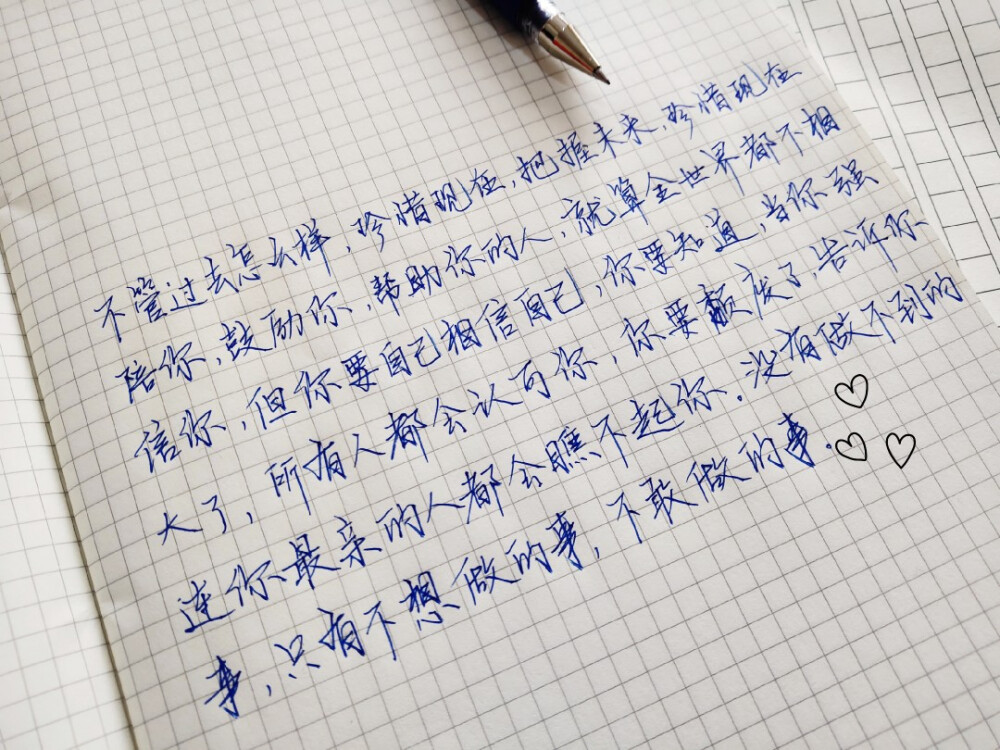 不管过去怎么样，珍惜现在，把握未来，珍惜现在
陪你，鼓励你，帮助你的人，就算全世界都不相
信你，但你要自己相信自己，你要知道，当你强
大了，所有人都会认可你，你要颓废了，告诉你
连你最亲的人都会瞧不起你．没有做不到的
事，只有不想做的事，不敢做的事．